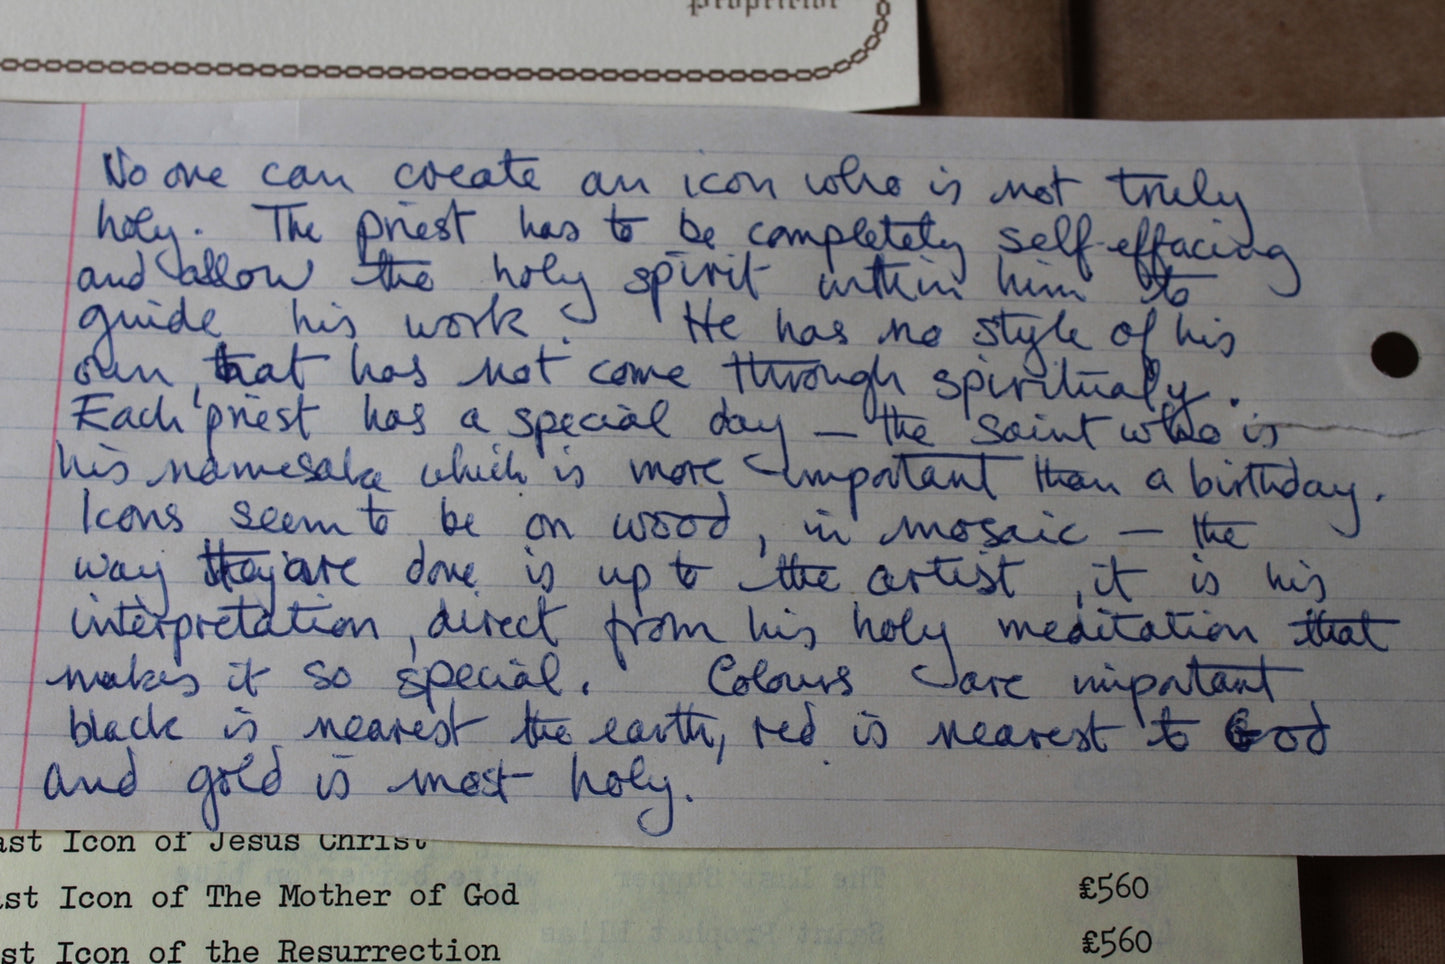 Proprietor
No one can create an icon who is not truly
holy. The priest has to be completely self-effacing
and allow the holy spirit within him to
guide his work. He has no style of his
own, that has not come through spiritualy.
Each priest has a special day – the saint who is
his namesake which is more important than a birthday.
Icons seem to be on wood, in mosaic – the
way they are done is up to the artist, it is his
interpretation, direct from his holy meditation that
makes it so special. Colours are important
black is nearest the earth, red is nearest to God
and gold is most holy.
ast Icon of Jesus Christ
ast Icon of The Mother of God £560
st Icon of the Resurrection £560